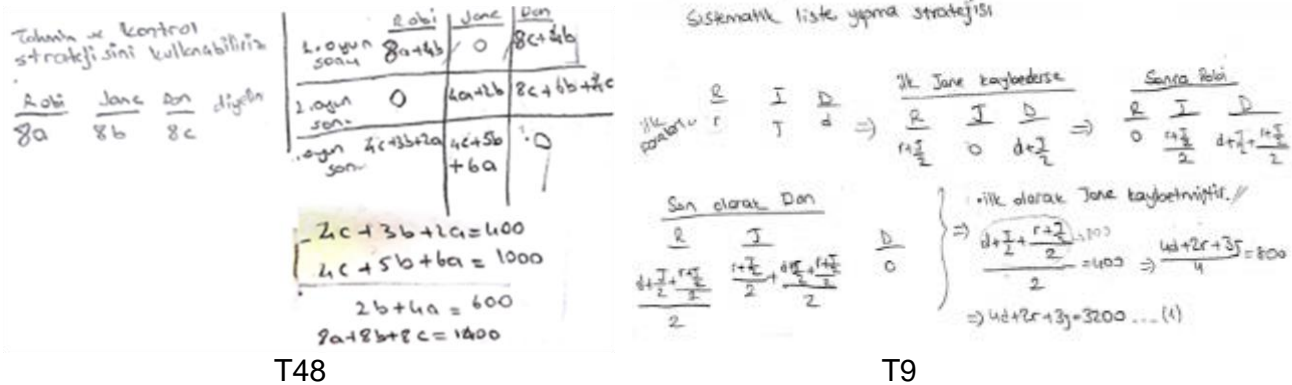 Tahmin ve kontrol
stratejisini kullanabiliriz
Robi Jane Don diyelim
8a 8b 8c
Robi Jane Don
1. oyun sonu 8a+4b 0 8c+4b
2. oyun sonu 0 4a+2b 8c+6b+4c
oyun son 4c+3b+2a 4c+5b+6a 0
4c+3b+2a=400
4c+5b+6a=1000
2b+4a=600
8a+8b+8c=1400
T48
Sistematik liste yapma stratejisi
ilk paraları
R J D
r J d
⇒
İlk Jane kaybederse
R J D
r+J/2 0 d+J/2
⇒
Sonra Robi
R J D
0 (r+J/2)/2 d+J/2+(r+J/2)/2
Son olarak Don
R J D
(d+J/2+(r+J/2)/2)/2 (r+J/2)/2+(d+J/2+(r+J/2)/2)/2 0
• ilk olarak Jane kaybetmiştir.//
⇒ (d+J/2+(r+J/2)/2)/2=400 ⇒ (4d+2r+3J)/4=800
⇒ 4d+2r+3j=3200 ....(1)
T9